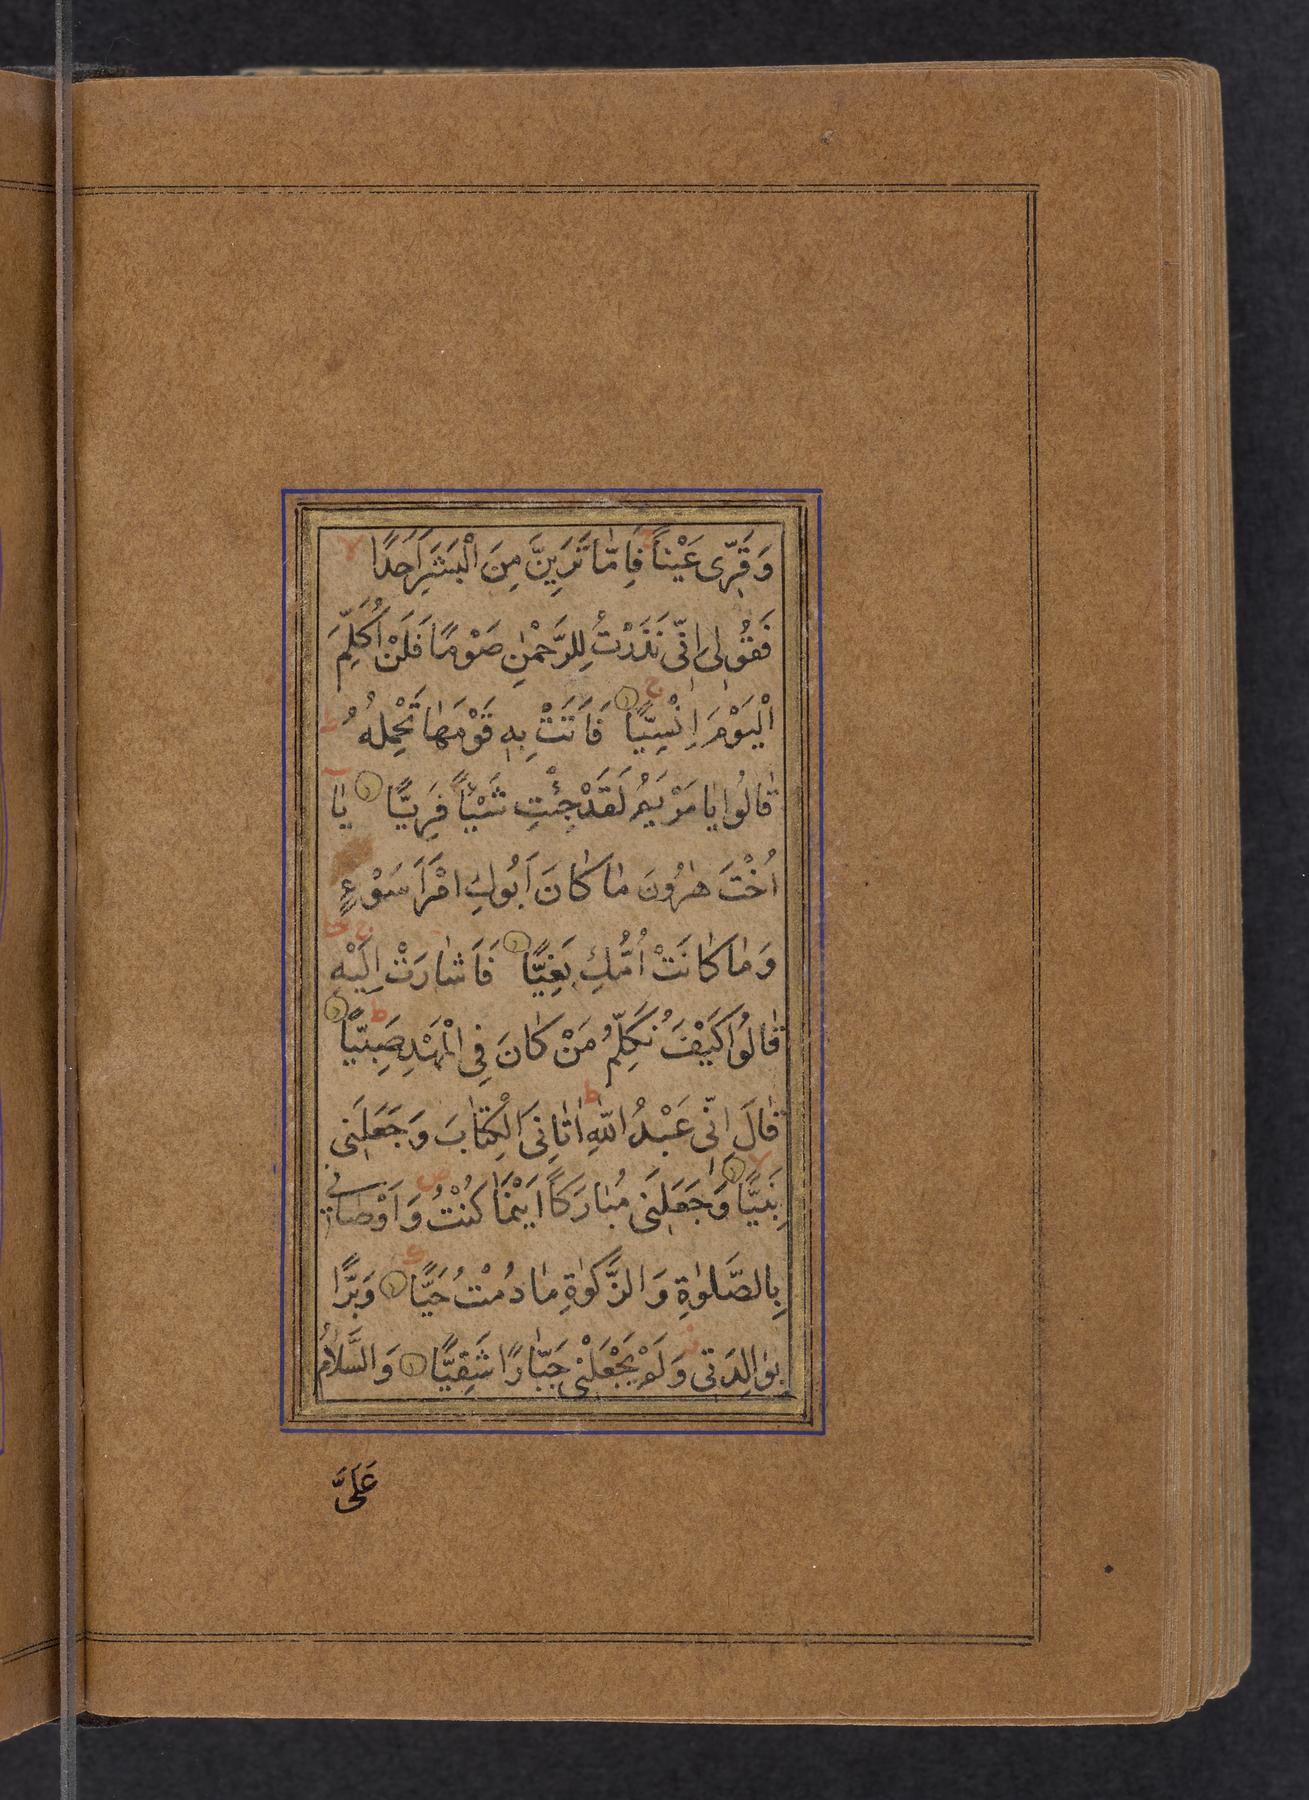 وَقَرِّى عَيْنًا فَاِمَّا تَرَيِنَّ مِنَ الْبَشَرِ اَحَدًا
فَقُولِى اِنِّى نَذَرْتُ لِلرَّحْمٰنِ صَوْمًا فَلَنْ اُكَلِّمَ
الْيَوْمَ اِنْسِيًّا فَاَتَتْ بِهٖ قَوْمَهَا تَحْمِلُهُ
قَالُوا يَا مَرْيَمُ لَقَدْ جِئْتِ شَيْئًا فَرِيًّا يَا
اُخْتَ هٰرُونَ مَا كَانَ اَبُوكِ امْرَاَ سَوْءٍ
وَمَا كَانَتْ اُمُّكِ بَغِيًّا فَاَشَارَتْ اِلَيْهِ
قَالُوا كَيْفَ نُكَلِّمُ مَنْ كَانَ فِى الْمَهْدِ صَبِيًّا
قَالَ اِنِّى عَبْدُ اللّٰهِ اٰتَانِىَ الْكِتَابَ وَجَعَلَنِى
نَبِيًّا وَجَعَلَنِى مُبَارَكًا اَيْنَمَا كُنْتُ وَاَوْصَانِى
بِالصَّلٰوةِ وَالزَّكٰوةِ مَا دُمْتُ حَيًّا وَبَرًّا
بِوَالِدَتِى وَلَمْ يَجْعَلْنِى جَبَّارًا شَقِيًّا وَالسَّلَامُ
عَلَىَّ